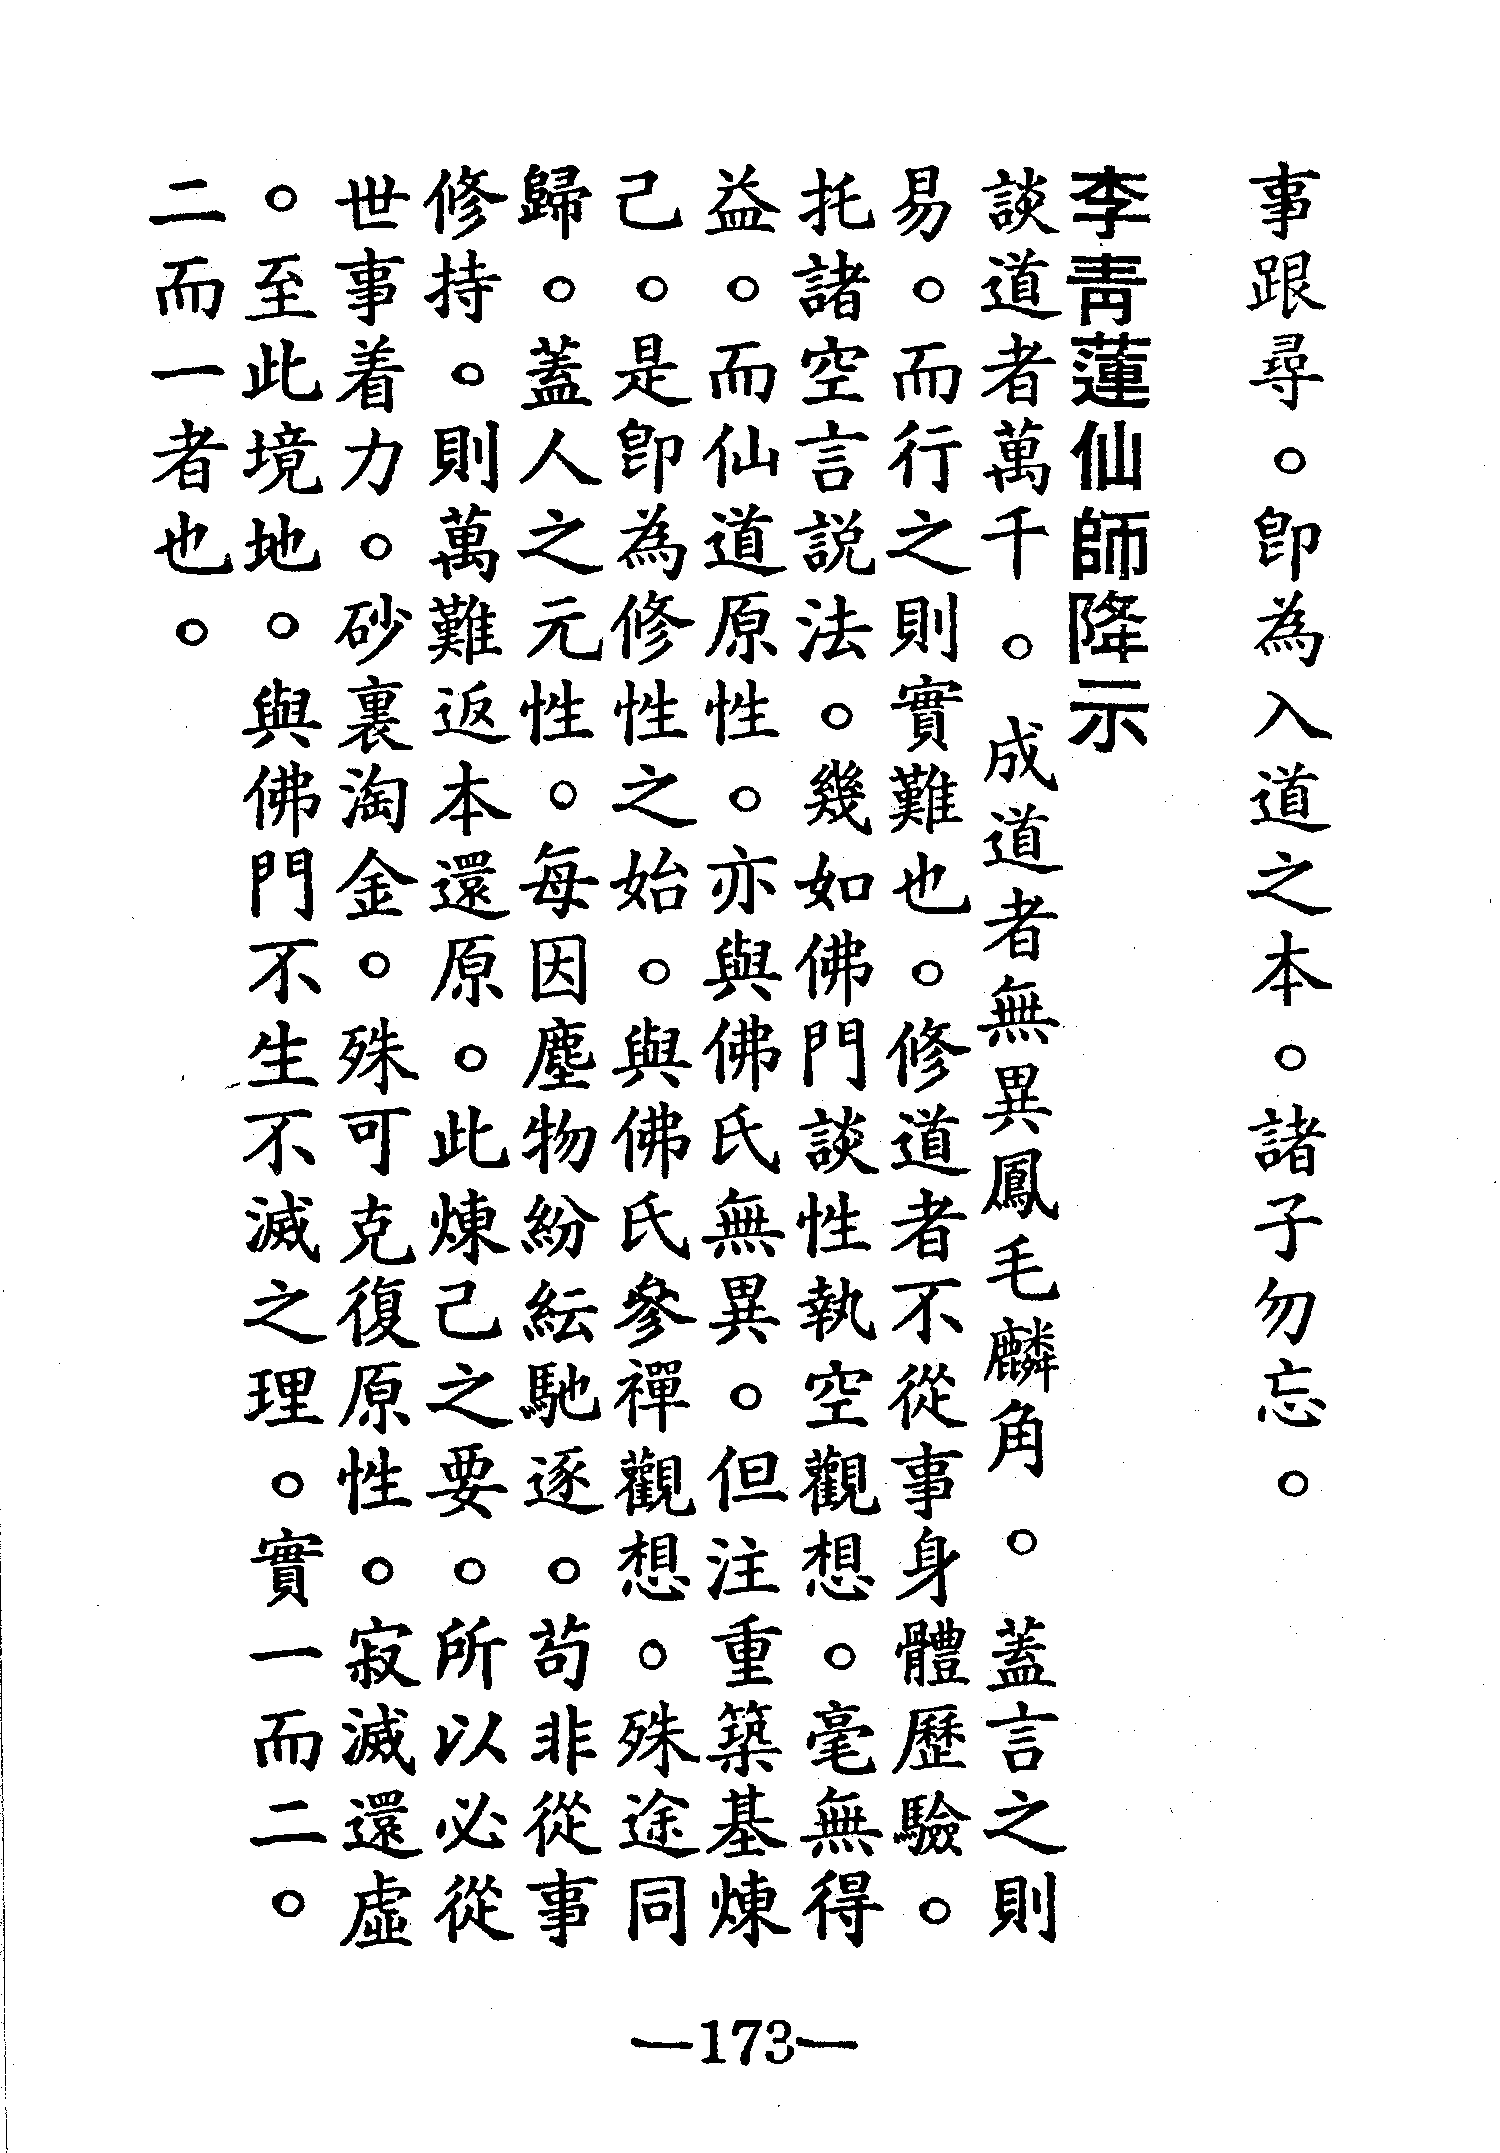 事跟尋。卽為入道之本。諸子勿忘。
李青蓮仙師降示
談道者萬千。成道者無異鳳毛麟角。蓋言之則
易。而行之則實難也。修道者不從事身體歷驗。
托諸空言説法。幾如佛門談性執空觀想。毫無得
益。而仙道原性。亦與佛氏無異。但注重築基煉
己。是卽為修性之始。與佛氏參禪觀想。殊途同
歸。蓋人之元性。每因塵物紛紜馳逐。苟非從事
修持。則萬難返本還原。此煉己之要。所以必從
世事着力。砂裏淘金。殊可克復原性。寂滅還虛
。至此境地。與佛門不生不滅之理。實一而二。
二而一者也。
—173—